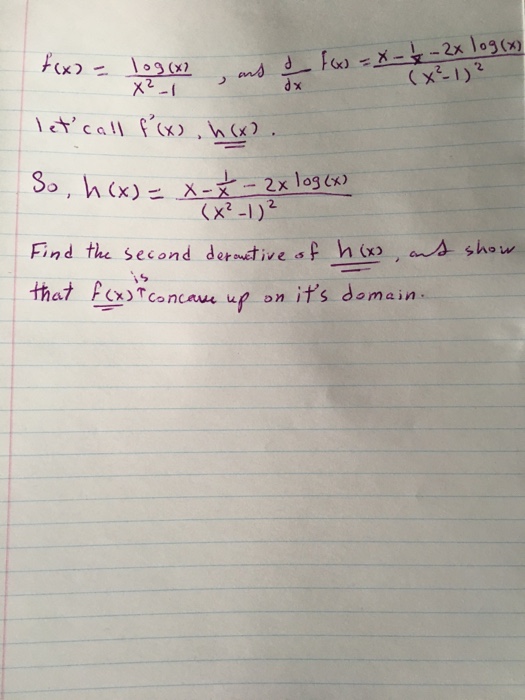 f(x) = log(x) / x² - 1 , and d/dx f(x) = x - 1/x - 2x log(x) / (x² - 1)²
let' call f'(x), h(x).
So, h(x) = x - 1/x - 2x log(x) / (x² - 1)²
Find the second deravtive of h(x), and show
that f(x) is concave up on it's domain.